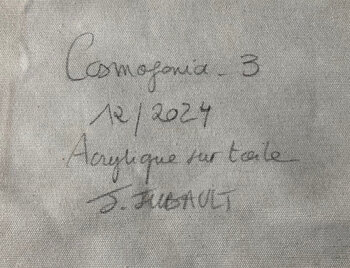 Cosmogonia - 3
12/2024
Acrylique sur toile
J.